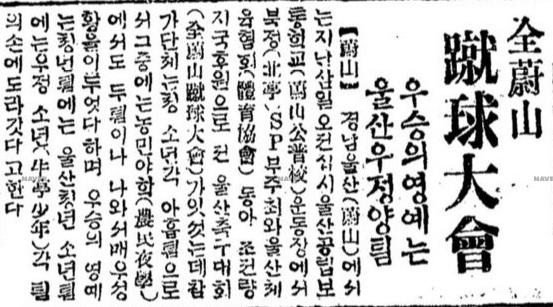 全蔚山
蹴球大會
우승의영예는
울산우정양팀
【蔚山】 경남울산(蔚山)에서
는지난삼일오전십시울산공립보
통학교(蔚山公普校)운동장에서
북정(北亭)SP부주최와울산체
육협회(體育協會) 동아 조선량
지국후원으로 전 울산축구대회
(全蔚山蹴球大會)가잇섯는데참
가단체는청 소년각 아홉팀으로
서그중에는농민야학(農民夜學)
에서도 두팀이나 나와서매우성
황을이루엇다하며 우승의 영예
는청년팀에는 울산청년 소년팀
에는우정 소년(牛亭少年)각 팀
의손에도라갓다 고한다